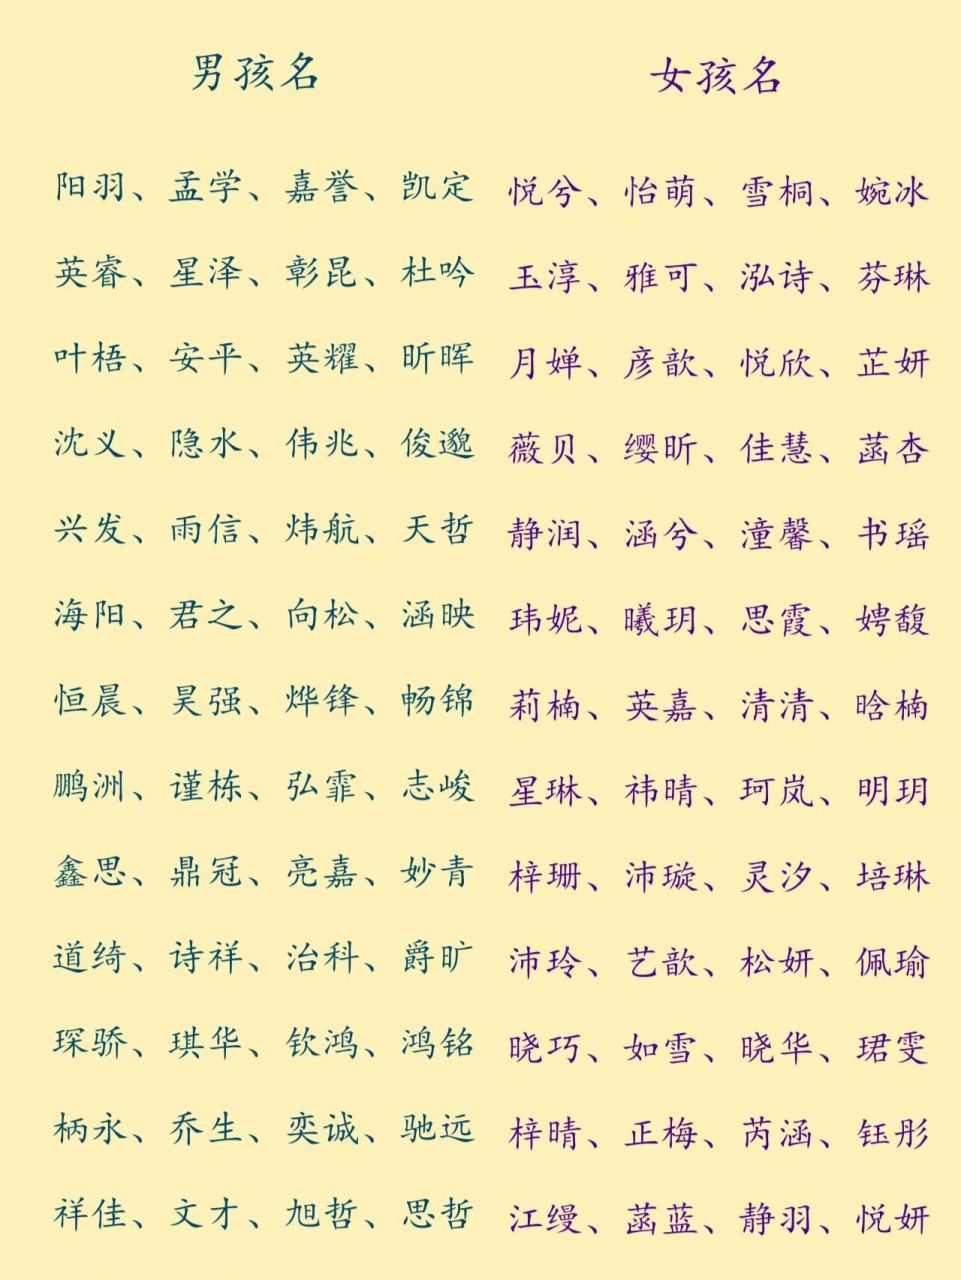 男孩名
阳羽、孟学、嘉誉、凯定
英睿、星泽、彰昆、杜吟
叶梧、安平、英耀、昕晖
沈义、隐水、伟兆、俊邈
兴发、雨信、炜航、天哲
海阳、君之、向松、涵映
恒晨、昊强、烨锋、畅锦
鹏洲、谨栋、弘霏、志峻
鑫思、鼎冠、亮嘉、妙青
道绮、诗祥、治科、爵旷
琛骄、琪华、钦鸿、鸿铭
柄永、乔生、奕诚、驰远
祥佳、文才、旭哲、思哲
女孩名
悦兮、怡萌、雪桐、婉冰
玉淳、雅可、泓诗、芬琳
月婵、彦歆、悦欣、芷妍
薇贝、缨昕、佳慧、菡杏
静润、涵兮、潼馨、书瑶
玮妮、曦玥、思霞、娉馥
莉楠、英嘉、清清、晗楠
星琳、祎晴、珂岚、明玥
梓珊、沛璇、灵汐、培琳
沛玲、艺歆、松妍、佩瑜
晓巧、如雪、晓华、珺雯
梓晴、正梅、芮涵、钰彤
江缦、菡蓝、静羽、悦妍